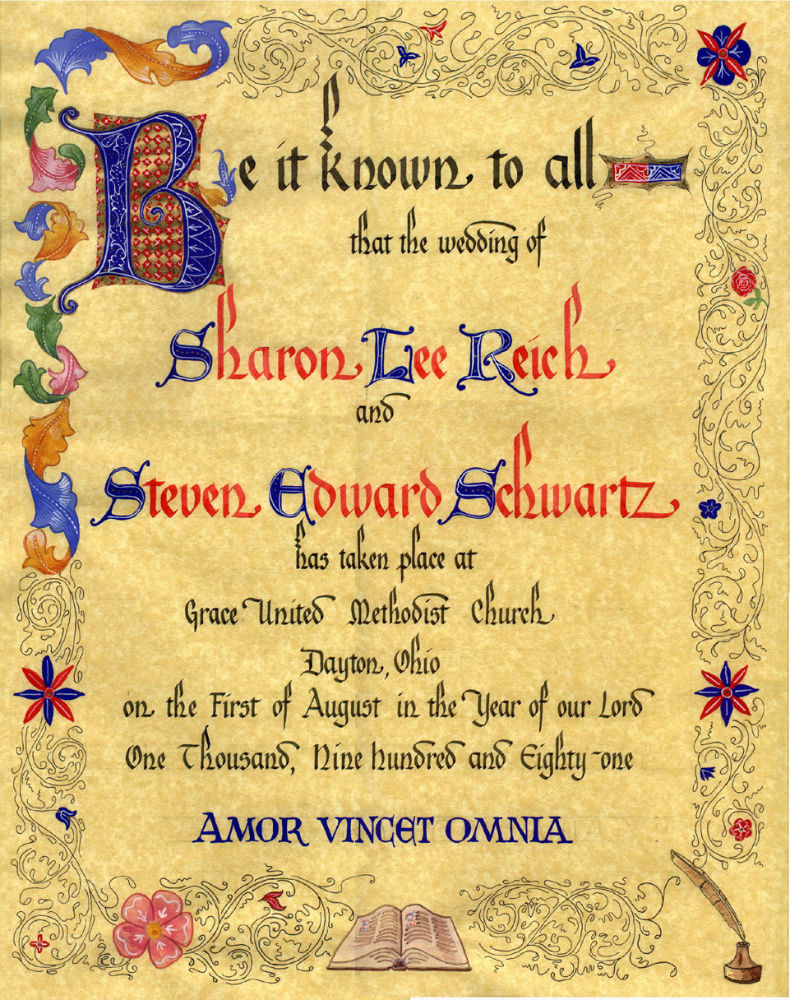 Be it known to all
that the wedding of
Sharon Lee Reich
and
Steven Edward Schwartz
has taken place at
Grace United Methodist Church
Dayton, Ohio
on the First of August in the Year of our Lord
One Thousand, Nine hundred and Eighty-one
AMOR VINCET OMNIA